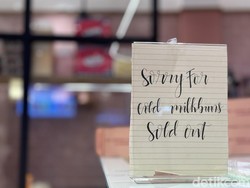 Sorry For
Cold milkbuns
Sold out
detikcom